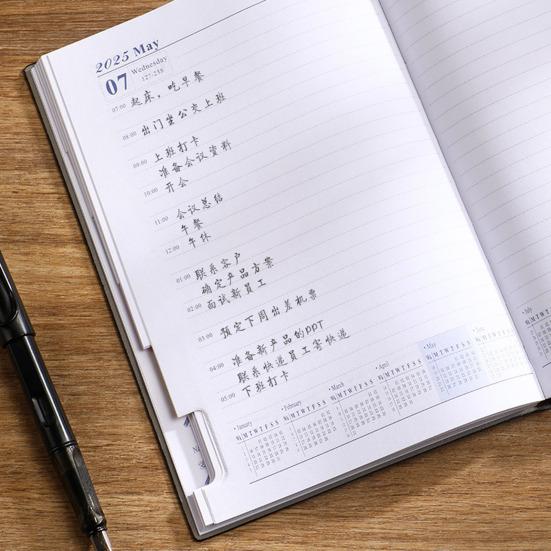 2025 May
07 Wednesday
127-238
07:00 起床，吃早餐
08:00 出门坐公交上班
09:00 上班打卡
准备会议资料
10:00 开会
11:00 会议总结
午餐
12:00 午休
01:00 联系客户
确定产品方案
02:00 面试新员工
03:00 预定下周出差机票
04:00 准备新产品的PPT
联系快递员工寄快递
05:00 下班打卡
January
February
March
April
May
July